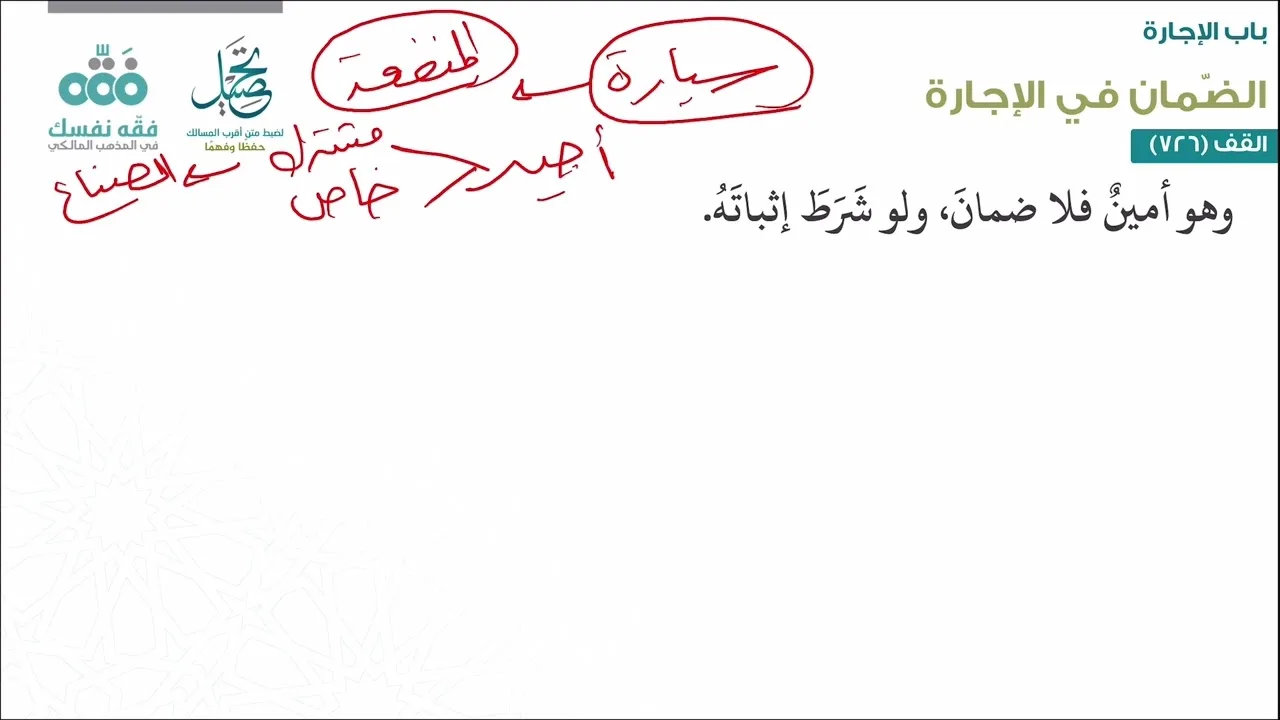 باب الإجارة
الضّمان في الإجارة
القف (٧٢٦)
وهو أمينٌ فلا ضمانَ، ولو شَرَطَ إثباتَهُ.
سيارة
المنفعة
أجير
مشترك
خاص
الصناع
تحصيل
لضبط متن أقرب المسالك
حفظا وفهمًا
فقّه نفسك
في المذهب المالكي